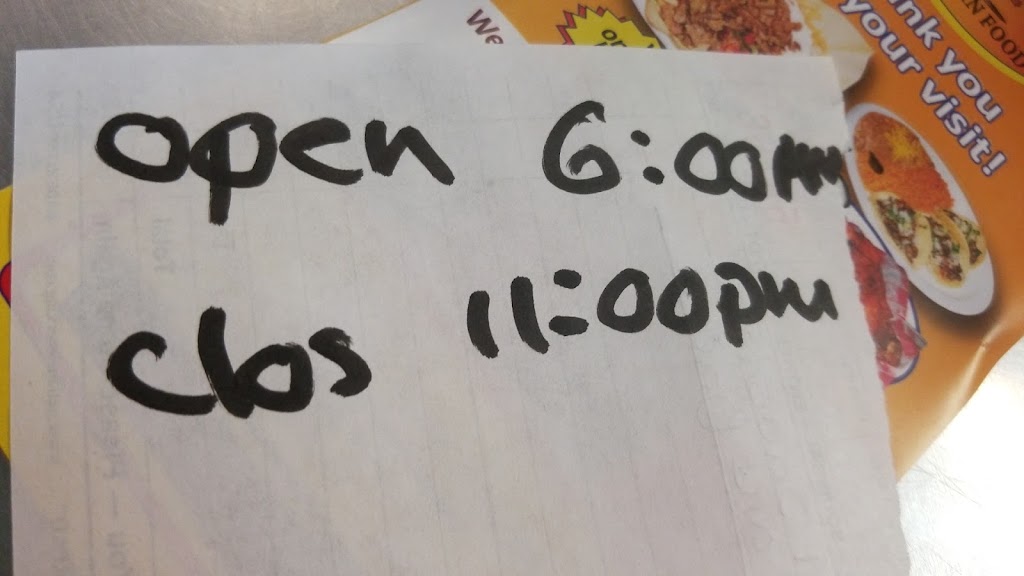 open 6:00AM
clos 11:00pm
We
on
ink you
your visit!
N FOOD